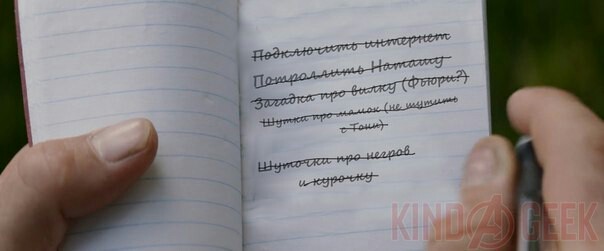 Подключить интернет
Потроллить Наташу
Загадка про вилку (Фьюри?)
Шутки про мамок (не шутить
с Тони)
Шуточки про негров
и курочку
KINDA GEEK